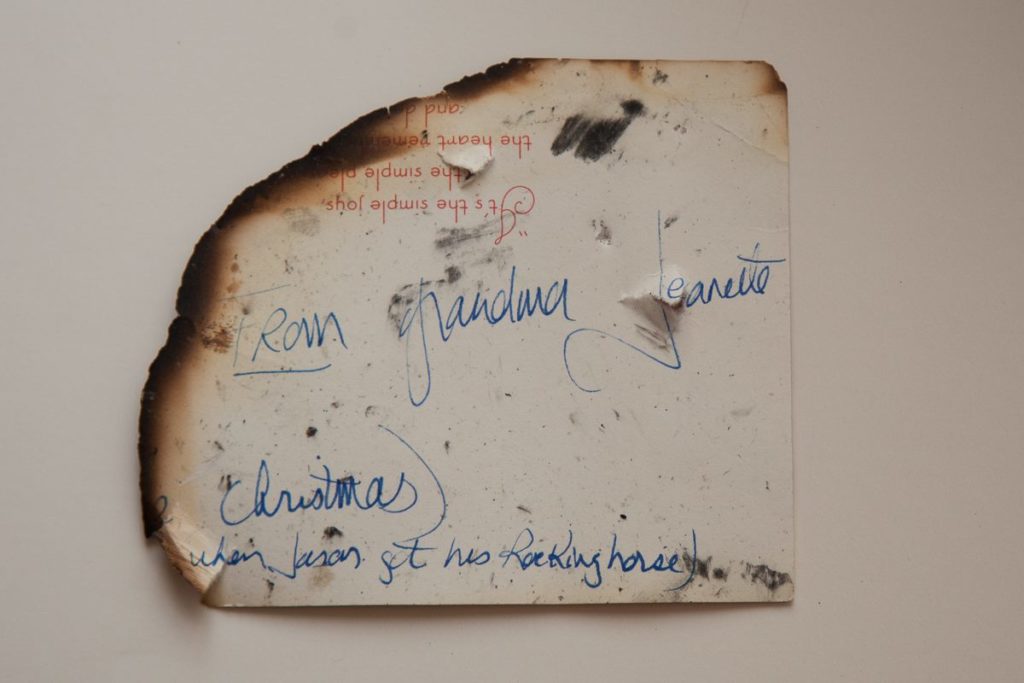 "It's the simple joys,
the simple ple
the heart remem
and d
From grandma Jeanette
Christmas)
when Jason get his Rocking horse)